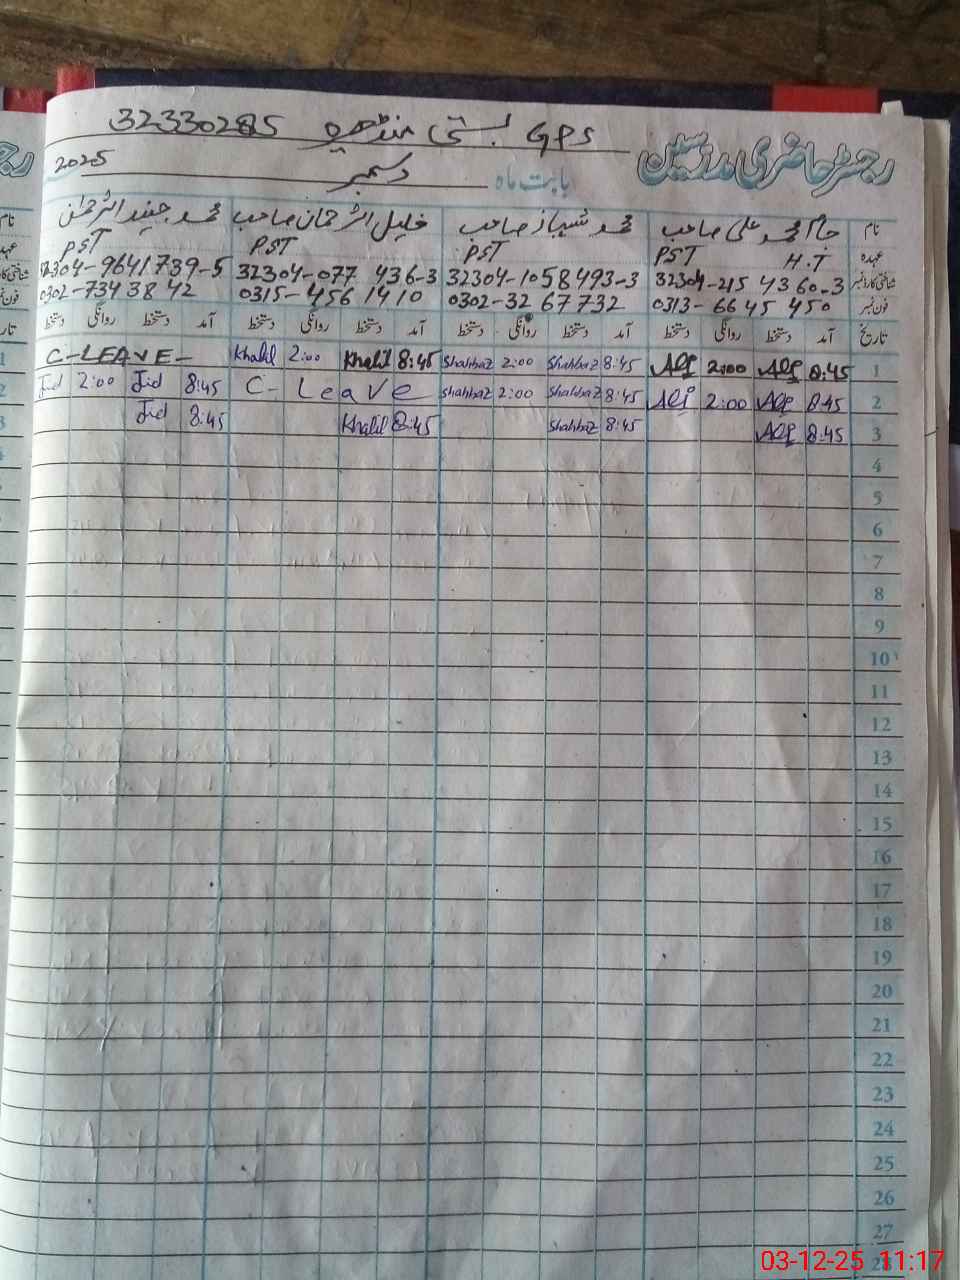 GPS بستی منڈھیرو 32330285
رجسٹر حاضری مدرسین
بابت ماہ دسمبر 2025
نام جام محمد علی صاحب محمد شہباز صاحب خلیل الرحمان صاحب محمد جنید الرحمٰن
عہدہ PST H.T PST PST PST
شناختی کارڈ نمبر 32304-215 4360-3 32304-1058493-3 32304-077 436-3 32304-9641739-5
فون نمبر 0313-6645 450 0302-32 67732 0315-456 1410 0302-734 38 42
تاریخ آمد دستخط روانگی دستخط آمد دستخط روانگی دستخط آمد دستخط روانگی دستخط آمد دستخط روانگی دستخط
1 8:45 Ali 2:00 Ali 8:45 Shahbaz 2:00 Shahbaz 8:45 Khalil 2:00 Khalil C-LEAVE-
2 8:45 Ali 2:00 Ali 8:45 Shahbaz 2:00 Shahbaz C-Leave 8:45 Jid 2:00 Jid
3 8:45 Ali 8:45 Shahbaz 8:45 Khalil 8:45 Jid
4
5
6
7
8
9
10
11
12
13
14
15
16
17
18
19
20
21
22
23
24
25
26
27
28
03-12-25 11:17